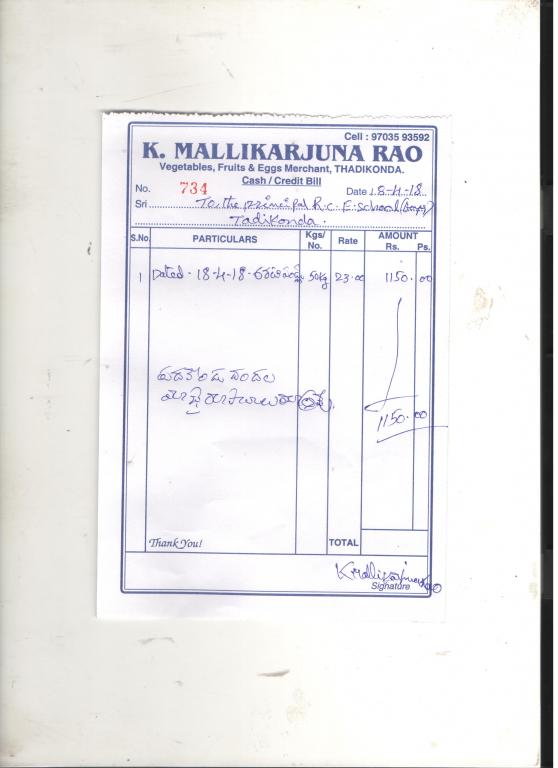 Cell : 97035 93592
K. MALLIKARJUNA RAO
Vegetables, Fruits & Eggs Merchant, THADIKONDA.
Cash / Credit Bill
No. 734 Date 18-4-18
Sri To, the principal R.C. E. School
Tadikonda.
S.No. PARTICULARS Kgs/ No. Rate AMOUNT Rs. Ps.
1 Dated - 18-4-18 - 50kg 23.00 1150.00
1150.00
Thank You! TOTAL
Signature